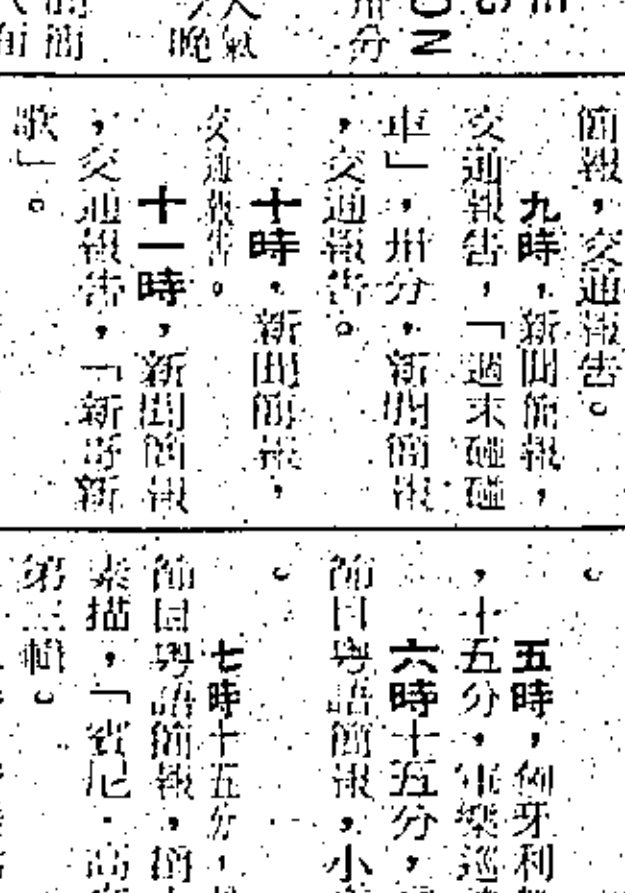 晚氣
卅分
簡報，交通報告。
九時，新聞簡報，
交通報告，「週末碰碰
車」，卅分，新聞簡報
，交通報告。
十時，新聞簡報，
交通報告。
十一時，新聞簡報
，交通報告，「新哥新
歌」。
。
五時，匈牙利
，十五分，軍樂巡
六時十五分，
節目粵語簡報，小
。
七時十五分，
節目粵語簡報，
素描，「賓尼·高
第三輯。